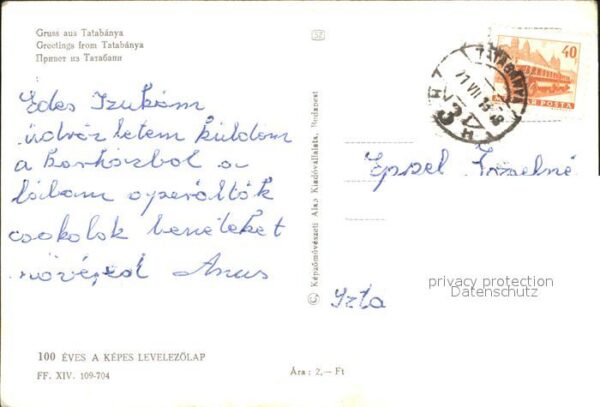 Gruss aus Tatabánya
Greetings from Tatabánya
Привет из Татабани
Édes Izukám
üdvözletem küldöm
a korházbol a
lábam operálták
csokolok benneteket
nővéred
SZ
© Képzőművészeti Alap Kiadóvállalata, Budapest
TATABÁNYA
71 VII
40
MAGYAR POSTA
Eppel Józselné
Izta
privacy protection
Datenschutz
100 ÉVES A KÉPES LEVELEZŐLAP
FF. XIV. 109-704
Ára : 2,— Ft